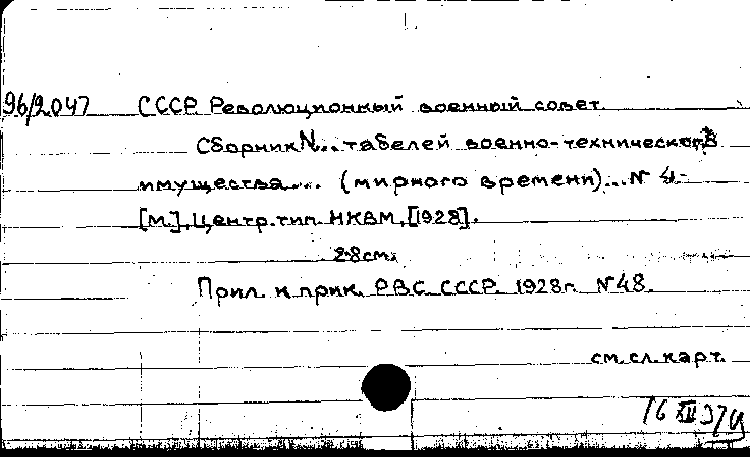 96/2047 СССР. Революционный военный совет.
Сборник N... табелей военно-технического
имущества... (мирного времени)... N 4-
[М.], Центр. тип. НКВМ, [1928].
28см.
Прил. к прик. РВС СССР. 1928г. N48.
см. сл. карт.
16 XII 37